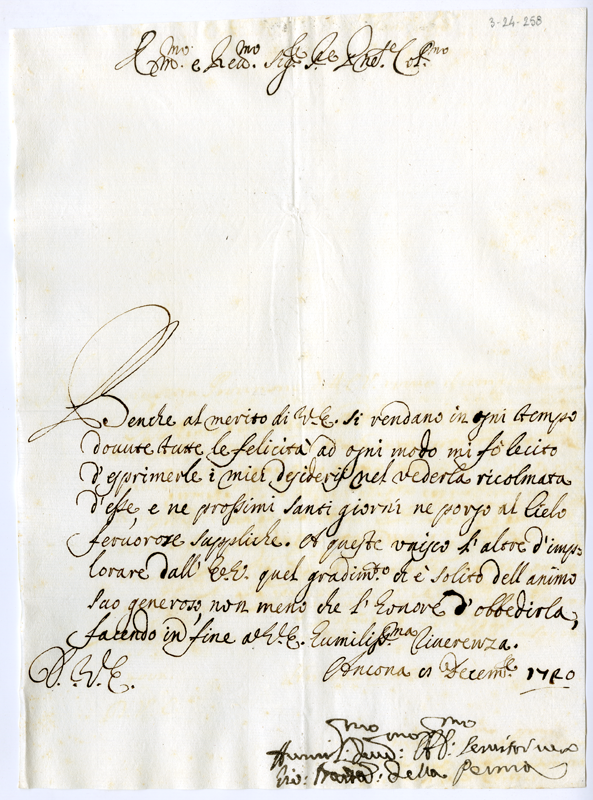 3-24-258
Em.mo e Rev.mo Sig.re S.re P.ne Col.mo
Benche al merito di V.E. si rendano in ogni tempo
dovute tutte le felicità ad ogni modo mi fo lecito
d'esprimerle i miei desiderij nel vederla ricolmata
d'esse, e ne prossimi santi giorni ne porgo al Cielo
fervorose suppliche. A queste unisco l'altre d'imp-
lorare dall' E.V. quel gradim.to ch'è solito dell'animo
suo generoso, non meno che l'honore d'obbedirla,
facendo in fine a V.E. humiliss.ma riverenza.
D. V. E. Ancona Decem.re 1720
Humil.mo Dev.mo Obb.mo Servitor vero
Gio: della Penna